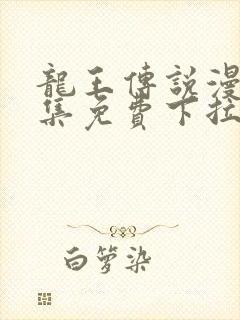 龍王傳說漫
集免費下拉
白箩染